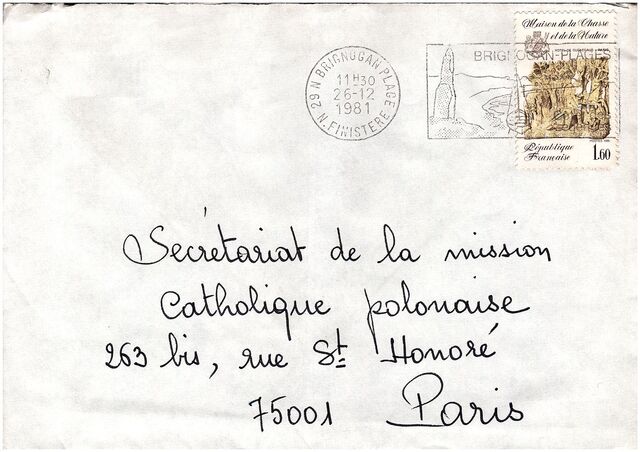 Maison de la Chasse
et de la Nature
BRIGNOGAN-PLAGES
29 N BRIGNOGAN PLAGE
11H30
26-12
1981
N. FINISTERE
République
Française
1.60
Secrétariat de la mission
Catholique polonaise
263 bis, rue St Honoré
75001 Paris